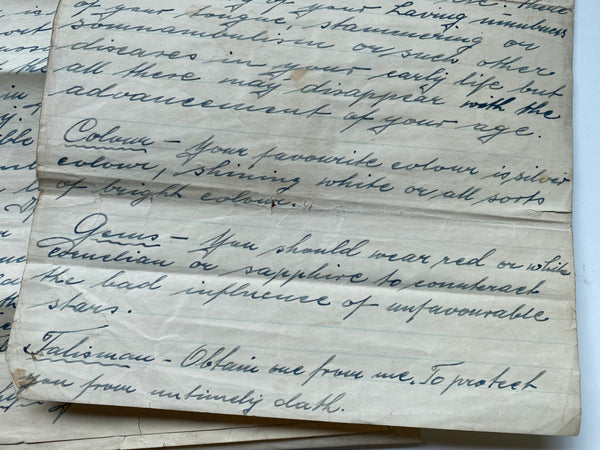 of your having numbness
of your tongue, stammering or
somnambulism or such other
diseases in your early life but
all there may disappear with the
advancement of your age.
Colour - Your favourite colour is, silver
colour, shining white or, all sorts
of bright colour.
Gems - You should wear, red or white
cornelian or sapphire to counteract
the bad influence of unfavourable
stars.
Talisman - Obtain one from me. To protect
you from untimely dath.